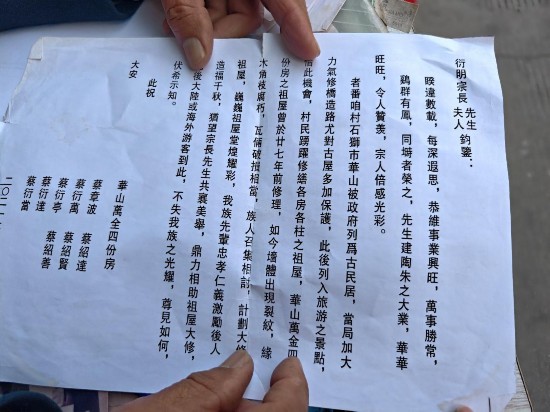 衍明宗長 先生 夫人 鈞鑒：
睽違數載，每深遐思，恭維事業興旺，萬事勝常，
鷄群有鳳，同塒者榮之，先生建陶朱之大業，華華
旺旺，令人贊羨，宗人倍感光彩。
者番咱村石獅市華山被政府列爲古民居，當局加大
力氣修橋造路尤對古屋多加保護，此後列入旅游之景點，
此機會，村民踴躍修繕各房各柱之祖屋，華山萬金四
份房之祖屋曾於廿七年前修理，如今墻體出現裂紋，緣
木角枝腐朽，瓦俑破損相當，族人召集相討，計劃大修
祖屋，巍巍祖屋堂煌耀彩，我族先輩忠孝仁義激勵後人
造福千秋，猶望宗長先生共襄美舉，鼎力相助祖屋大修，
後大陸或海外游客到此，不失我族之光耀，尊見如何，
伏希示知。
此祝
大安
華山萬全四份房
蔡章波 蔡紹達
蔡衍萬 蔡紹賢
蔡衍亭 蔡紹善
蔡衍達
蔡衍當
二〇